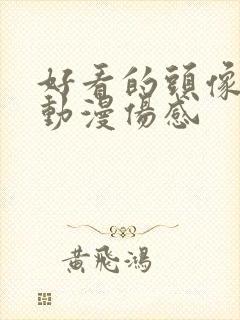 好看的頭像
動漫傷感
黃飛鴻